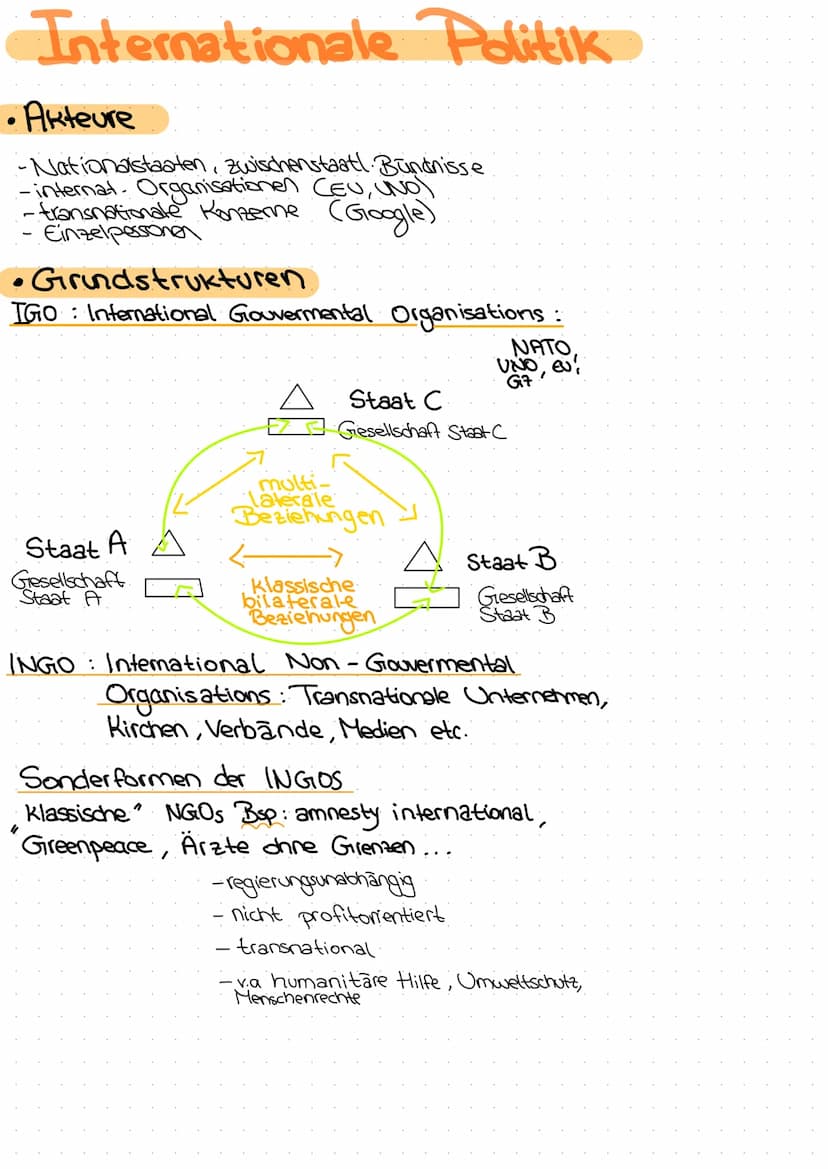 Internationale Politik
• Akteure
- Nationalstaaten, zwischenstaatl. Bündnisse
- internat. Organisationen (EU, UNO)
- transnationale Konzerne (Google)
- Einzelpersonen
• Grundstrukturen
IGO : International Gouvermental Organisations :
NATO,
UNO, EU,
G7
Staat C
Gesellschaft Staat C
multi-
laterale
Beziehungen
Staat A
Staat B
Gesellschaft
Staat A
klassische
bilaterale
Beziehungen
Gesellschaft
Staat B
INGO : International Non - Gouvermental
Organisations : Transnationale Unternehmen,
Kirchen, Verbände, Medien etc.
Sonderformen der INGOs
"klassische" NGOs Bsp: amnesty international,
Greenpeace, Ärzte ohne Grenzen ...
- regierungsunabhängig
- nicht profitorientiert
- transnational
- v.a humanitäre Hilfe, Umweltschutz,
Menschenrechte